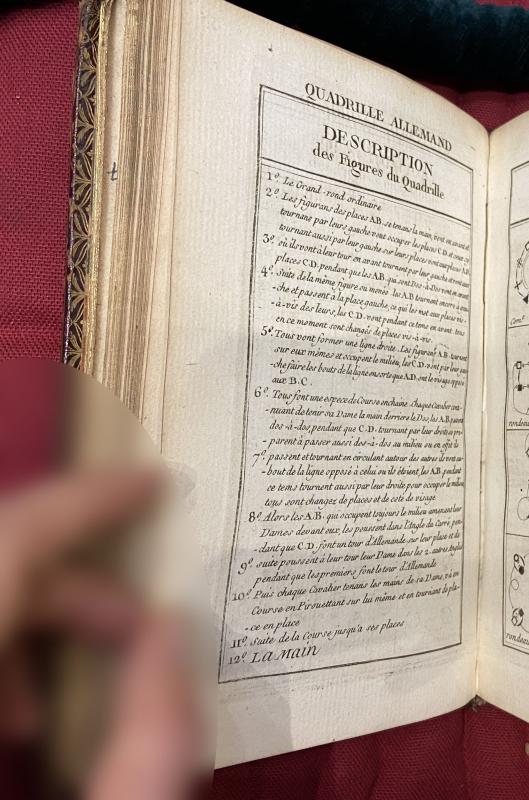 t
QUADRILLE ALLEMAND
DESCRIPTION
des Figures du Quadrille
1º. Le Grand-rond ordinaire
2º. Les figurans des places A.B. se tenans la main, vont en avant et
tournant par leurs gauche vont occuper les places C.D. et ceux cy
tournant aussi par leur gauche sur leurs places vont aux places A.B.
3º. où ils vont à leur tour en avant tournent par leur gauche et vont aux
places C.D. pendant que les A.B. qui sont Dos-à-Dos vont en avant
4º. Suite de la même figure ou moins les A.B. tournent encore à gau-
-che et passent à la place gauche, ce qui les met aux places vis-
-à-vis des leurs, les C.D. vont pendant ce tems en avant. tous
en ce moment sont changés de places vis-à-vis.
5º. Tous vont former une ligne droite. Les figurans A.B. tournent
sur eux mêmes et occupent le milieu, les C.D. vont par leur gau-
-che faire les bouts de la ligne ensorte que A.D. ont le visage opposé
aux B.C.
6º. Tous font une espece de Course enchaine. chaque Cavalier conti-
-nuant de tenir sa Dame la main derriere le Dos, les A.B. passent
dos-à-dos, pendant que C.D. tournant par leur droite se pre-
-parent à passer aussi dos-à-dos au milieu ou en effet ils
7º. passent et tournant en circulant autour des autres ils vont au-
-bout de la ligne opposé à celui ou ils étoient, les A.B. pendant
ce tems tournent aussi par leur droite pour occuper le milieu
tous sont changez de places et de coté de visage
8º. Alors les A.B. qui occupent toujours le milieu amenent leur
Dames devant eux, les poussent dans l'Angle du Carré, pen-
-dant que C.D. font un tour d'Allemande sur leur place et de
9º. suite poussent à leur tour leur Dame dans les 2. autres Angles
pendant que les premiers font le tour d'Allemande
10º. Puis chaque Cavalier tenans les mains de sa Dame, va en
Course en Pirouettant sur lui même et en tournant de pla-
-ce en place
11º. Suite de la Course jusqu'a ses places
12º. La Main
Cont.e
rondeau
rondeau